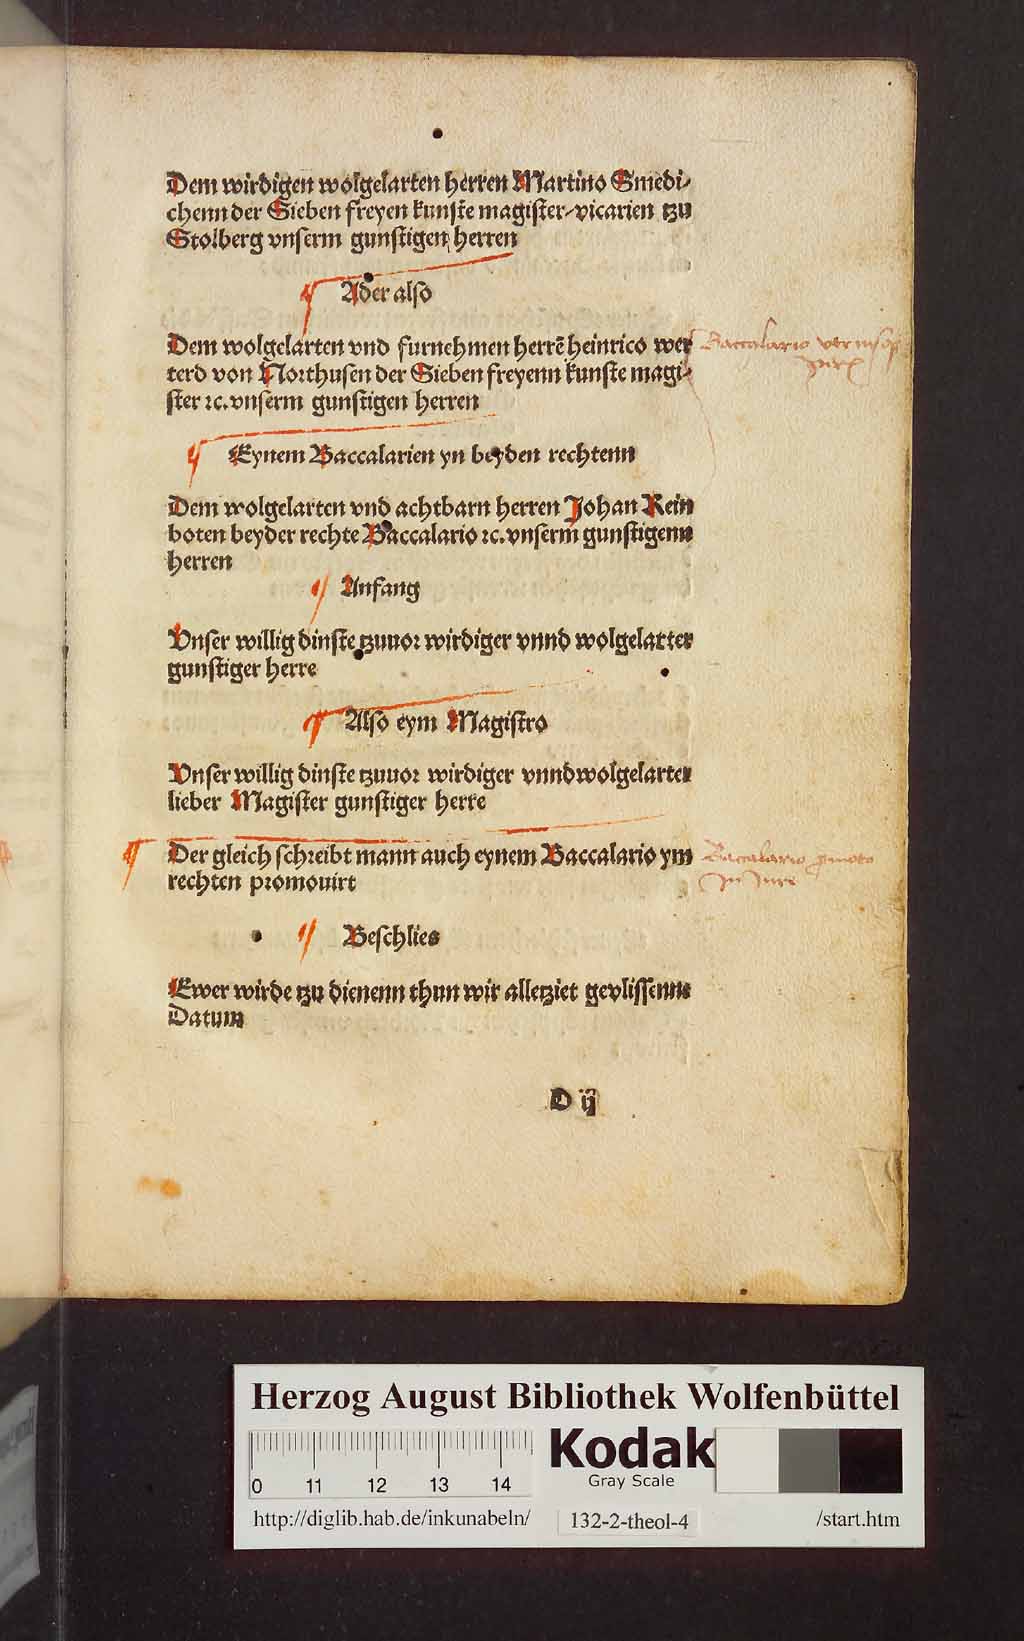 Dem wirdigen wolgelarten herren Martino Smedi-
chenn der Sieben freyen kunste magister/vicarien tzu
Stolberg vnserm gunstigen herren
Ader also
Dem wolgelarten vnd furnehmen herrē heinrico wer
Baccalario
terd von Northusen der Sieben freyenn kunste magi-
ster ꝛc. vnserm gunstigen herren
Eynem Baccalarien yn beyden rechtenn
Dem wolgelarten vnd achtbarn herren Johan Rein
boten beyder rechte Baccalario ꝛc. vnserm gunstigenn
herren
Anfang
Vnser willig dinste tzuuor wirdiger vnnd wolgelarter
gunstiger herre
Also eym Magistro
Vnser willig dinste tzuuor wirdiger vnnd wolgelarter
lieber Magister gunstiger herre
Der gleich schreibt mann auch eynem Baccalario ym
Baccalario
rechten promouirt
In Jure
Beschlies
Ewer wirde tzu dienenn thun wir alletziet gevlissenn
Datum
D ij
Herzog August Bibliothek Wolfenbüttel
0 11 12 13 14
Kodak
Gray Scale
http://diglib.hab.de/inkunabeln/ 132-2-theol-4 /start.htm